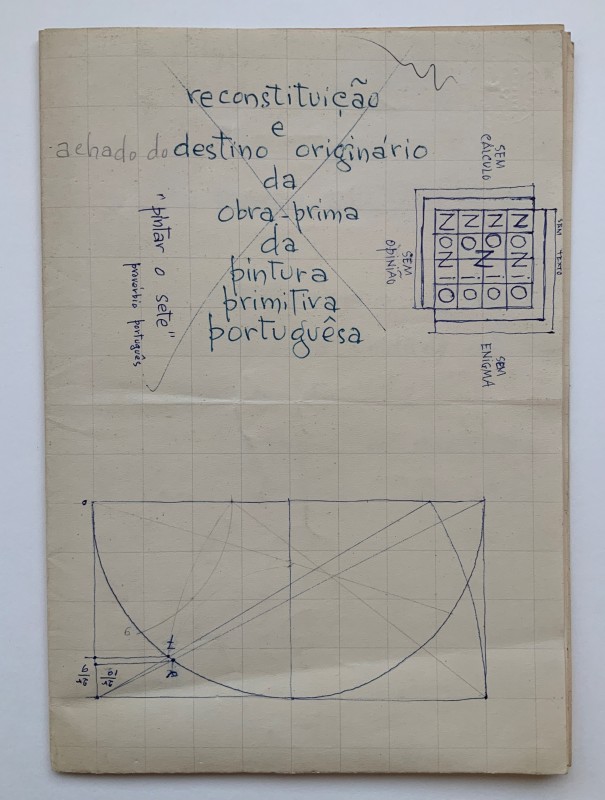 reconstituição
e
achado do destino originário
da
obra-prima
da
pintura
primitiva
portuguêsa
"pintar o sete"
provérbio português
SEM
CÁLCULO
SEM TEXTO
SEM
OPINIÃO
SEM
ENIGMA
NNNN
ONOO
NONN
iiii
OOOO
6
N
R